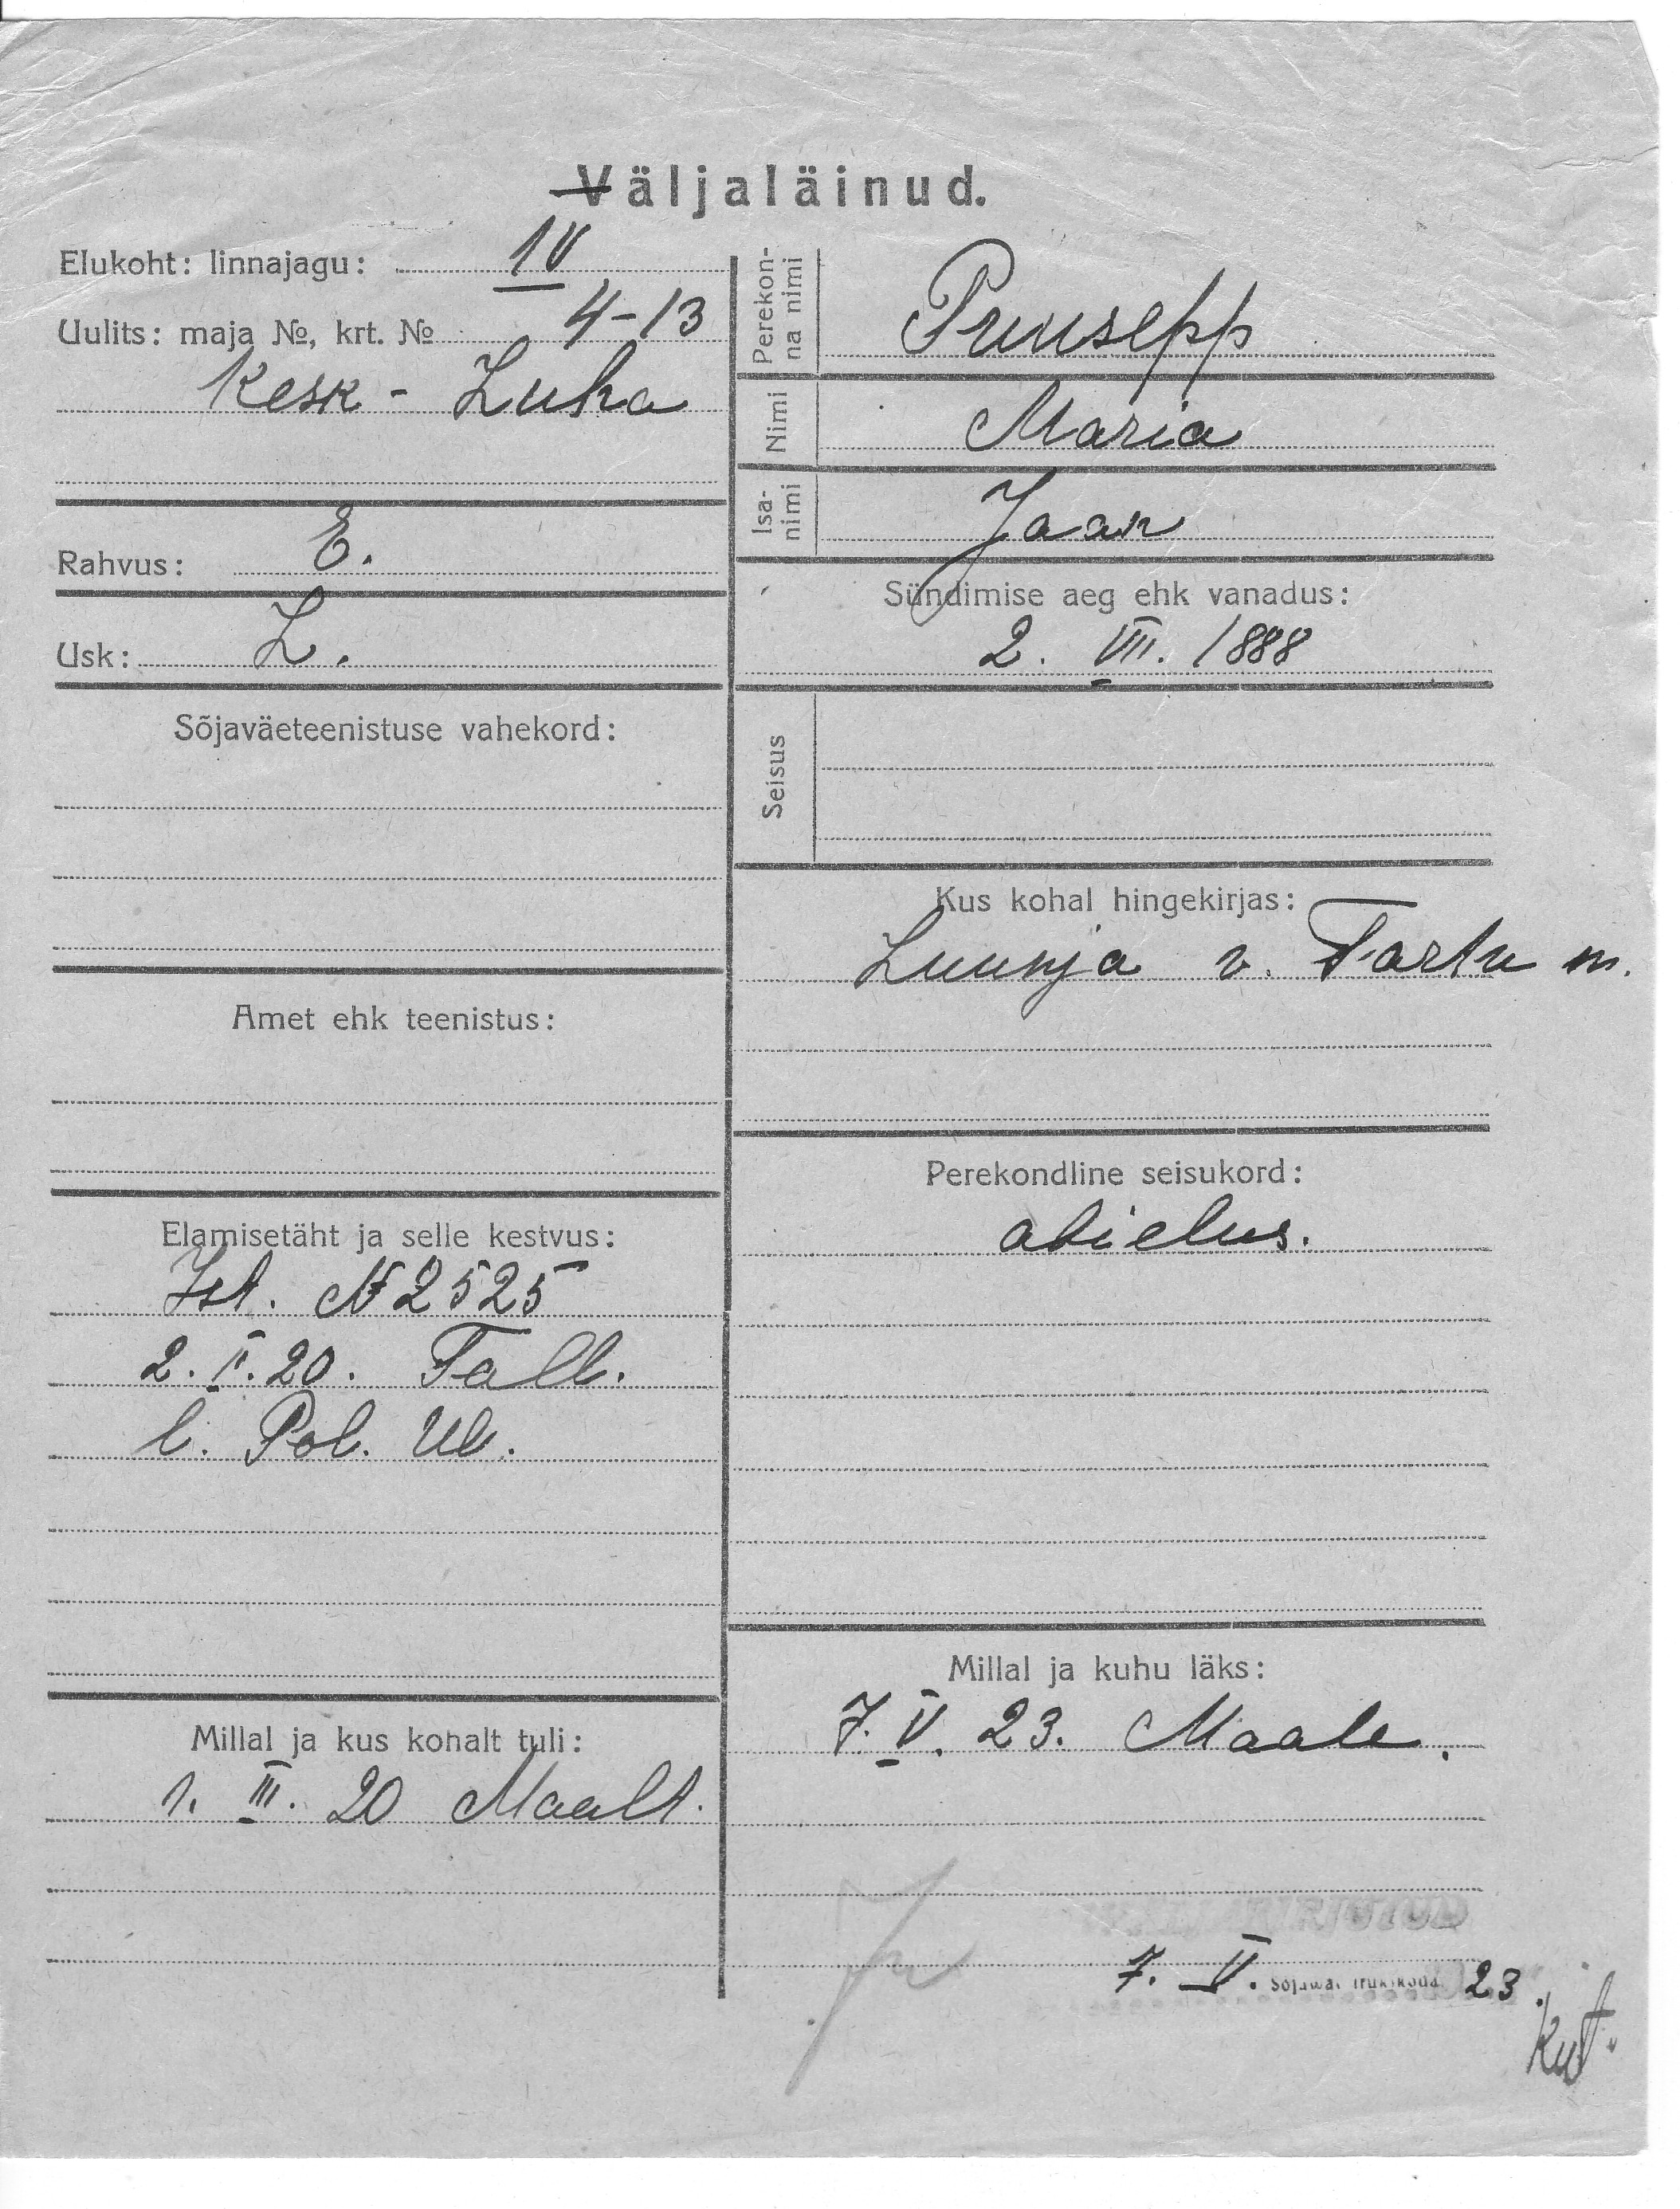 Väljaläinud.
Elukoht: linnajagu: IV
Uulits: maja №, krt. № 4-13
Kesk - Luha
Rahvus: E.
Usk: L.
Sõjaväeteenistuse vahekord:
Amet ehk teenistus:
Elamisetäht ja selle kestvus:
Ist. № 2525
2. V. 20. Tall.
l. Pol. Ül.
Millal ja kus kohalt tuli:
1. III. 20 Maalt.
Perekon-
na nimi Pruusepp
Nimi Maria
Isa-
nimi Jaan
Sündimise aeg ehk vanadus:
2. VII. 1888
Seisus
Kus kohal hingekirjas:
Luunja v. Tartu m.
Perekondline seisukord:
abielus.
Millal ja kuhu läks:
7. V. 23. Maale.
7. V. Sõjawäe trükikoda 23.